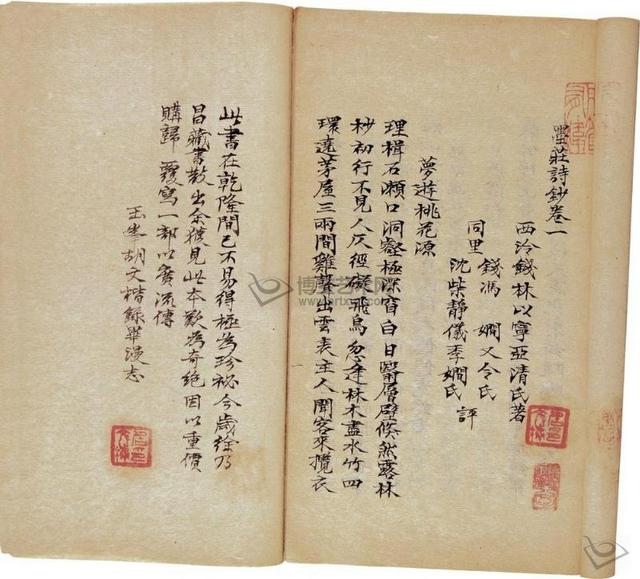 墨莊詩鈔卷一
西泠錢林以寧亞清氏著
錢馮 嫻又令氏
同里
沈柴靜儀季嫻氏 評
夢遊桃花源
理楫石瀨口洞壑極深窅白日翳層壁倏然露林
杪初行不見人仄徑礙飛鳥忽逢林木盡水竹四
環遶茅屋三兩間雞聲出雲表主人聞客來攬衣
此書在乾隆間已不易得極為珍祕今歲徐乃
昌藏書散出余獲見此本歎為奇絕因以重價
購歸 覆寫一部以廣流傳
玉峯胡文楷錄畢漫志
博宝艺术网